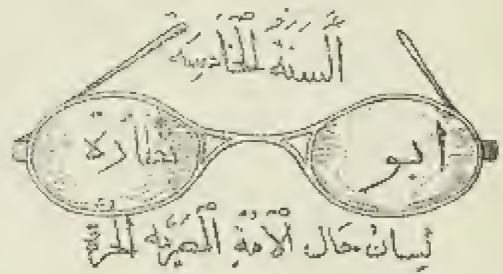 السنة الخامسة
ابو نظارة
لسان حال الامة المصرية الحرة